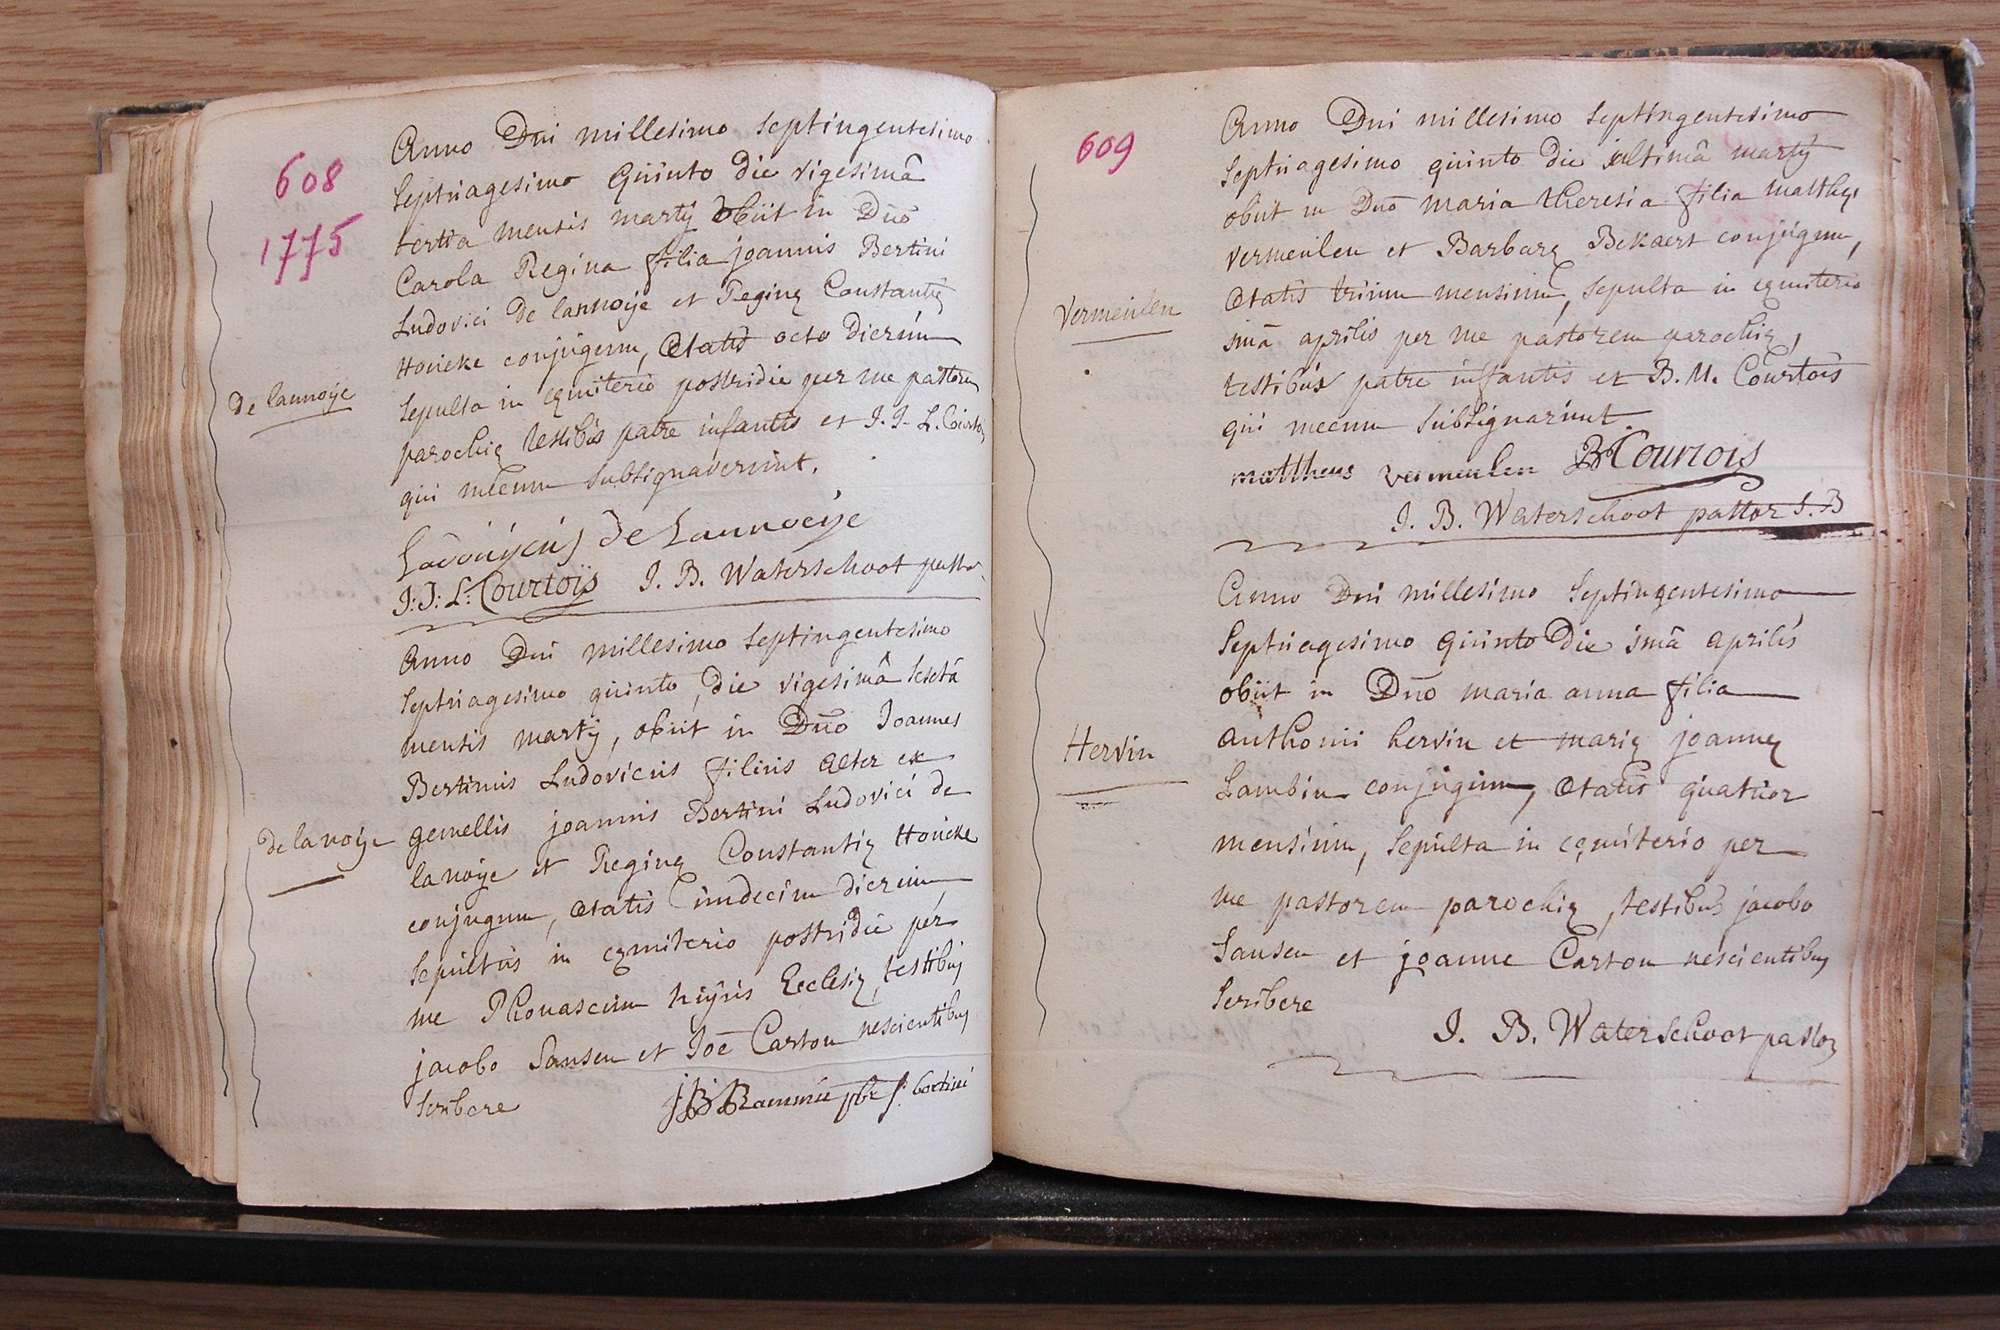 608
1775
Anno Dni millesimo septingentesimo
septuagesimo quinto die vigesimâ
tertia mensis martÿ obiit in Dnō
Carola Regina filia joannis Bertini
Ludovici De lannoÿe et Reginę Constantię
Houcke conjugum, ætatis octo dierum
sepulta in cęmiterio postridie per me pastorem
parochię testibus patre infantis et J. J. L. Courtois
qui mecum subsignaverunt.
De lannoÿe
De Lannoeije
J: J: L: Courtoïs J. B. Waterschoot pastor
Anno Dni millesimo septingentesimo
septuagesimo quinto, die vigesimâ sextâ
mensis martÿ, obiit in Dnō Joannes
Bertinus Ludovicus filius alter ex
gemellis joannis Bertini Ludovici de
lanoÿe et Reginę Constantię Houcke
conjugum, ætatis undecim dierum
sepultus in cęmiterio postridie per
me huÿus Ecclesię, testibus
jacobo Sansen et Joē Carton nescientibus
scribere
de lanoÿe
609
Anno Dni millesimo septingentesimo
septuagesimo quinto die ultimâ martÿ
obiit in Dnō maria theresia filia matthÿs
vermeulen et Barbarę Bekaert conjugum,
ætatis trium mensium, sepulta in cęmiterio
1mâ aprilis per me pastorem parochię,
testibus patre infantis et B. M. Courtois
qui mecum subsignarunt.
Vermeulen
mattheus vermeulen B Courtois
J. B. Waterschoot pastor J. B
Anno Dni millesimo septingentesimo
septuagesimo quinto Die 1mâ aprilis
obiit in Dnō maria anna filia
anthonii hervin et marię joannę
Lambin conjugum, ætatis quatuor
mensium, sepulta in cęmiterio per
me pastorem parochię, testibus jacobo
Sansen et joanne Carton nescientibus
scribere
Hervin
J. B. Waterschoot pastor